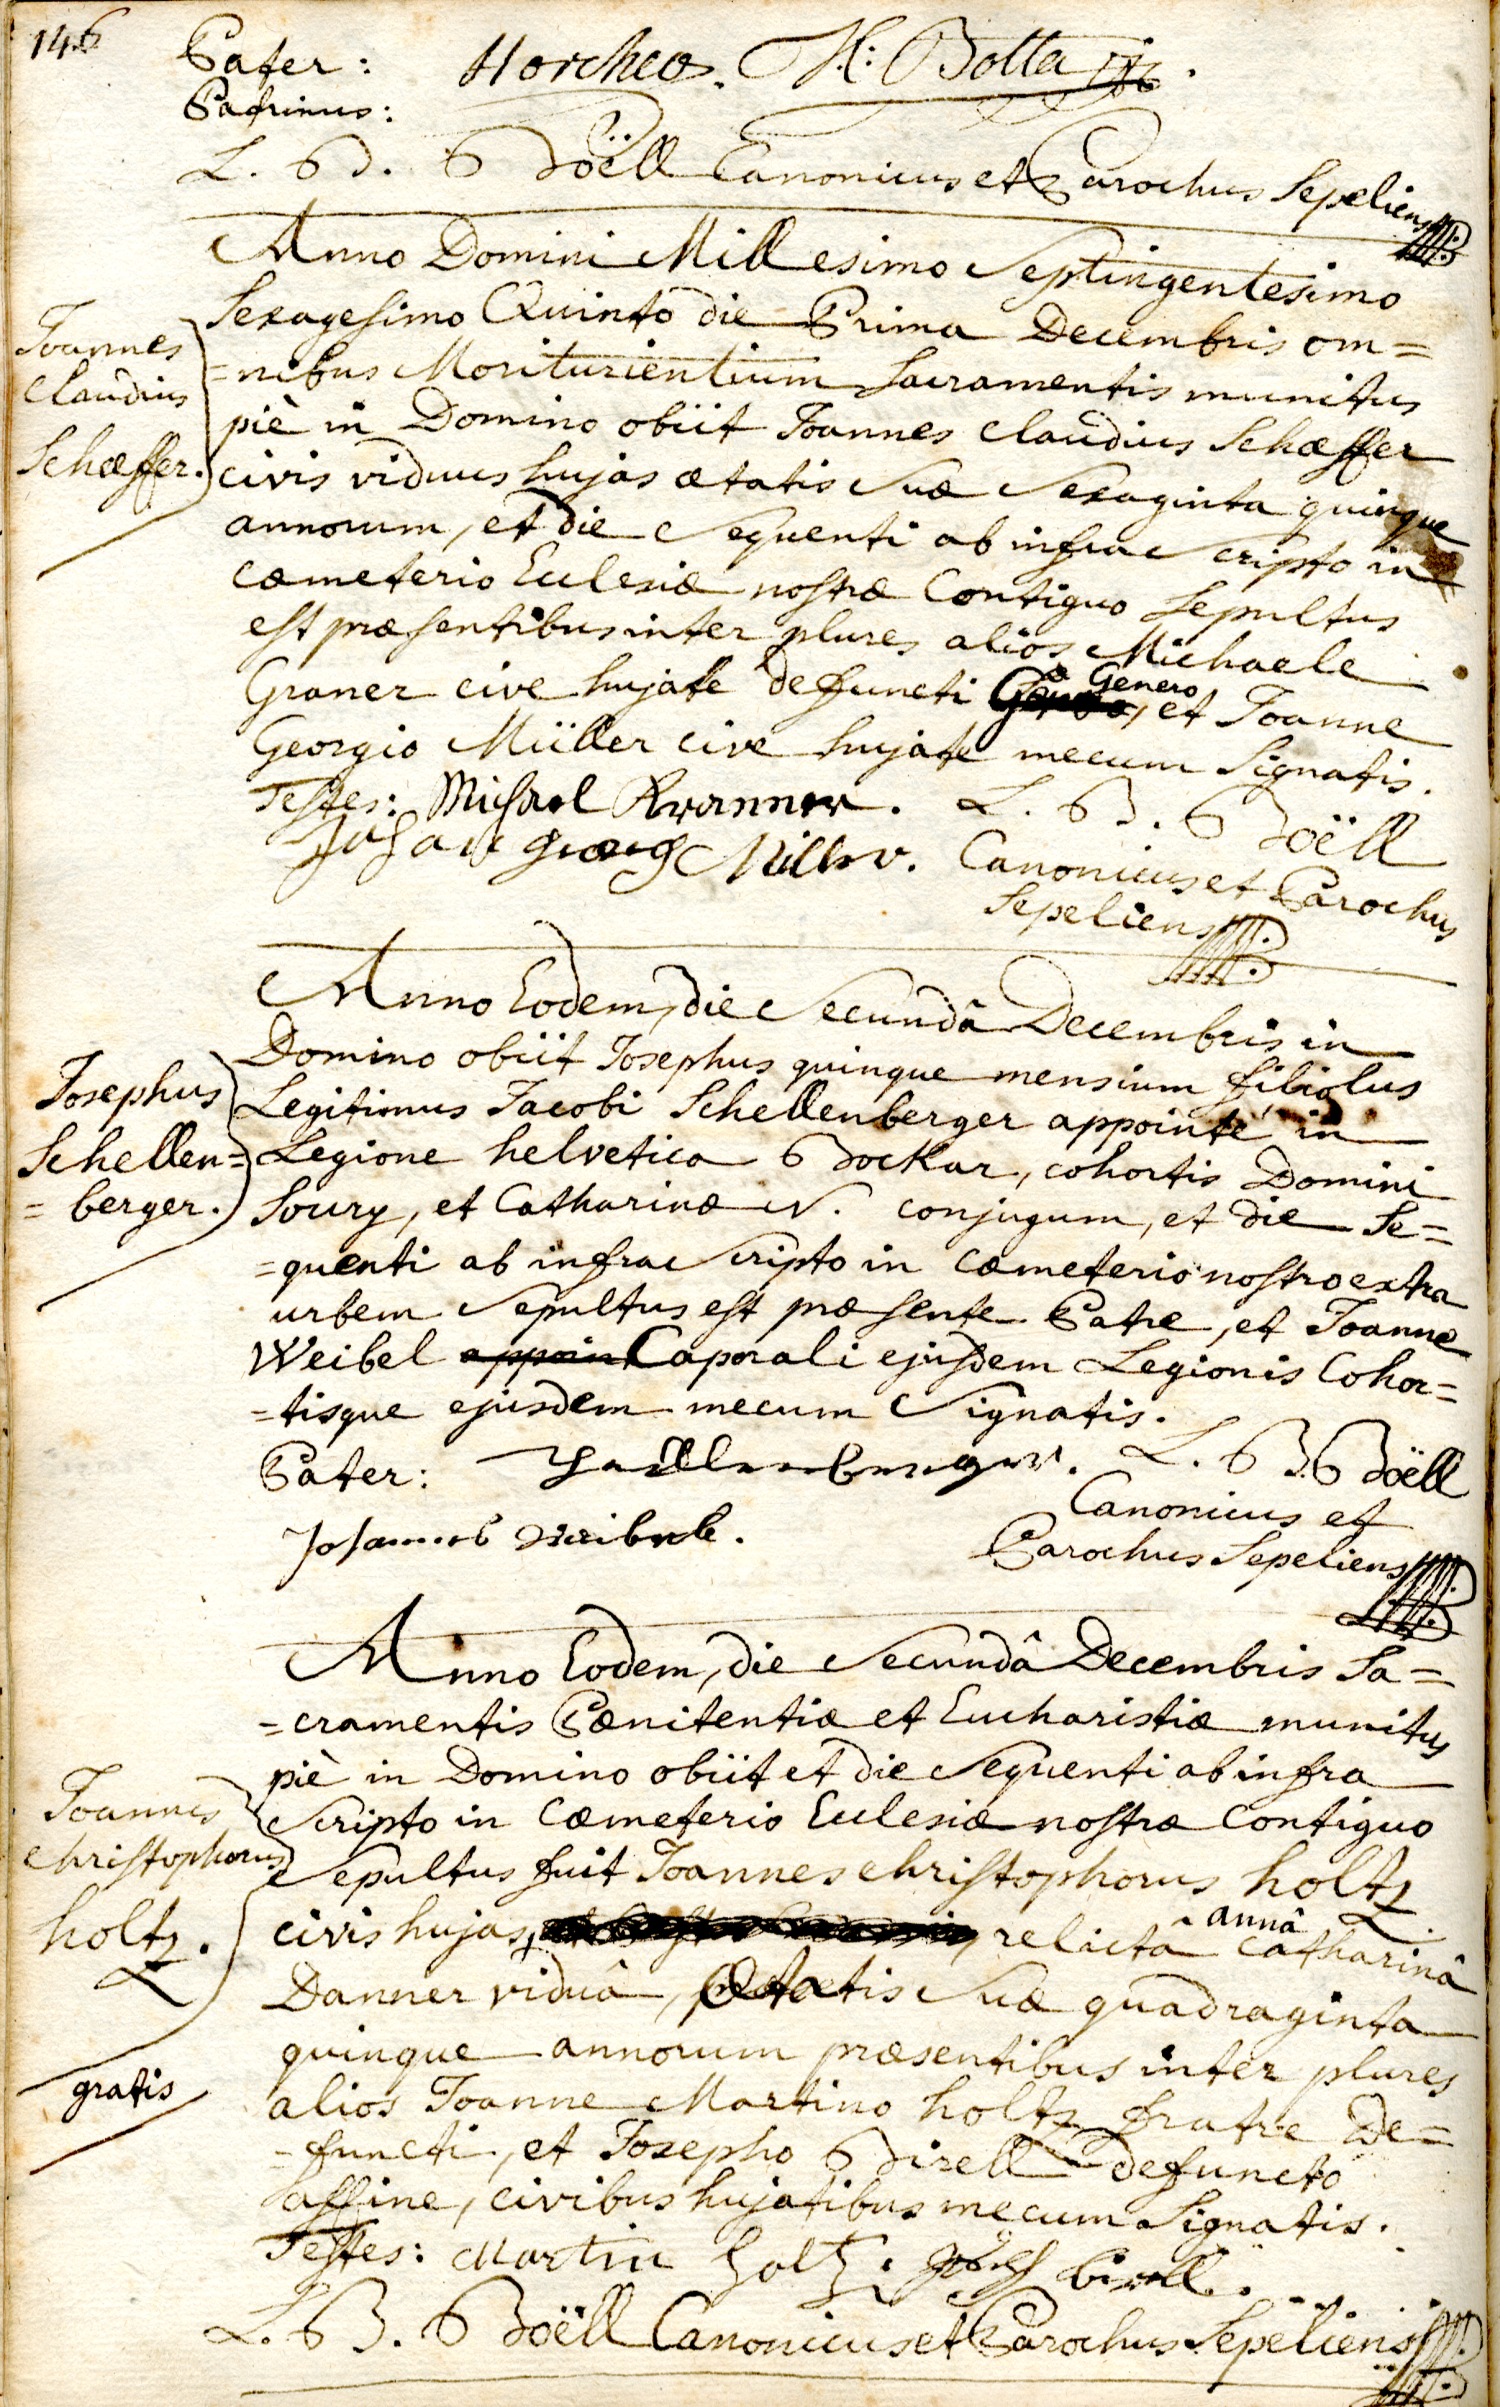 146
Pater: Horcher. H: Botta
Patrinus:
L. B. Boëll Canonicus et Parochus Sepeliens
Anno Domini Millesimo Septingentesimo
Sexagesimo Quinto die Prima Decembris om=
=nibus Moriturientium Sacramentis munitus
piè in Domino obiit Joannes Claudius Schæffer
civis viduus hujas ætatis suæ Sexaginta quinque
annorum, et die Sequenti ab infra Scripto in
cæmeterio Eclesiæ nostræ Contiguo Sepultus
est præsentibus inter plures alios Michaele
Graner cive hujate defuncti Genero, et Joanne
Georgio Müller cive hujate mecum Signatis.
Testes: Michael Kranner. L. B. Boëll
Johan Georg Miller. Canonicus et Parochus
Sepeliens
Joannes
Claudius
Schæffer.
Anno Eodem, die Secundâ Decembris in
Domino obiit Josephus quinque mensium filiolus
Legitimus Jacobi Schellenberger appointé in
Legione helvetica Bockar, cohortis Domini
Soury, et Catharinæ N. conjugum, et die Se=
=quenti ab infra Scripto in cæmeterio nostro extra
urbem Sepultus est præsente Patre, et Joanne
Weibel appoint Caporali ejusdem Legionis Cohor=
=tisque ejusdem mecum Signatis.
Pater: Schellenberger. L. B. Boëll
Canonicus et
Johannes Weibel.
Parochus Sepeliens
Josephus
Schellen=
=berger.
Anno Eodem, die Secundâ Decembris Sa=
=cramentis Pænitentiæ et Eucharistiæ munitus
piè in Domino obiit et die Sequenti ab infra
Scripto in Cæmeterio Eclesiæ nostræ Contiguo
Sepultus fuit Joannes Christophorus holtz
civis hujas, relictâ annâ Catharinâ
Danner viduâ, Ætatis Suæ quadraginta
quinque annorum præsentibus inter plures
alios Joanne Martino holtz fratre De=
=functi, et Josepho Birell defuncto
affine, civibus hujatibus mecum Signatis.
Testes: Martin Holtz. Joseph birell.
L. B. Boëll Canonicus et Parochus Sepeliens
Joannes
Christophorus
holtz.
gratis